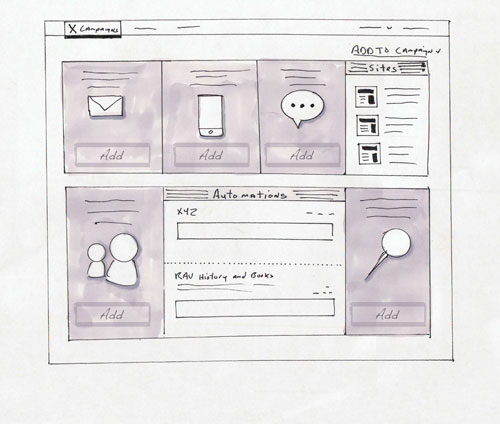 X Campaigns
ADD TO Campaign
Sites
Add
Add
Add
Automations
XYZ
RAV History and Books
Add
Add